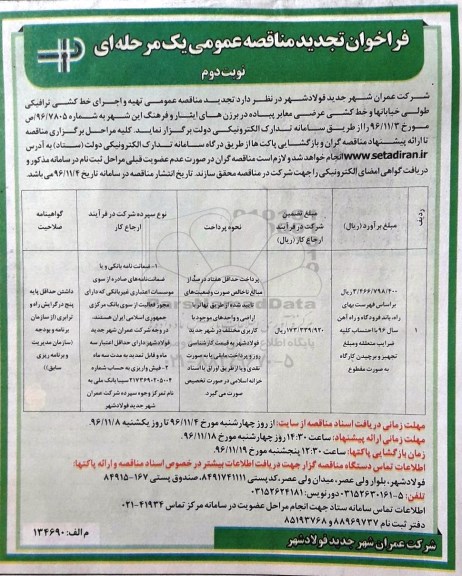 فراخوان تجدید مناقصه عمومی یک مرحله‌ای
نوبت دوم
شرکت عمران شهر جدید فولادشهر در نظر دارد تجدید مناقصه عمومی تهیه و اجرای خط کشی ترافیکی
طولی خیابانها و خط کشی عرضی معابر پیاده در برزن های ایثار و فرهنگ این شهر به شماره ۹۶/۷۸۰۵/ص
مورخ ۹۶/۱۱/۳ را از طریق سامانه تدارک الکترونیکی دولت برگزار نماید. کلیه مراحل برگزاری مناقصه
تا ارائه پیشنهاد مناقصه گران و بازگشایی پاکت ها از طریق درگاه سامانه تدارک الکترونیکی دولت (ستاد) به آدرس
www.setadiran.ir انجام خواهد شد و لازم است مناقصه گران در صورت عدم عضویت قبلی مراحل ثبت نام در سامانه مذکور و
دریافت گواهی امضای الکترونیکی را جهت شرکت در مناقصه محقق سازند. تاریخ انتشار مناقصه در سامانه تاریخ ۹۶/۱۱/۴ می باشد.
ردیف
مبلغ برآورد (ریال)
مبلغ تضمین شرکت در فرآیند ارجاع کار (ریال)
نحوه پرداخت
نوع سپرده شرکت در فرآیند ارجاع کار
گواهینامه صلاحیت
۱
۳/۴۶۶/۷۹۸/۴۰۰ ریال
براساس فهرست بهای
راه، باند فرودگاه و راه آهن
سال ۹۶ با احتساب کلیه
ضرایب متعلقه و مبلغ
تجهیز و برچیدن کارگاه
به صورت مقطوع
۱۷۳/۳۳۹/۹۲۰ ریال
پرداخت حداقل هفتاد درصد از
مبلغ ناخالص صورت وضعیت‌های
تایید شده از طریق تهاتر با
اراضی و واحدهای موجود با
کاربری مختلف در شهر جدید
فولادشهر به قیمت کارشناسی
روز و پرداخت مابقی یا به صورت
نقدی و یا از طریق اوراق با اسناد
خزانه اسلامی در صورت تخصیص
صورت می گیرد.
۱- ضمانت نامه بانکی و یا
ضمانت‌نامه‌های صادره از سوی
موسسات اعتباری غیربانکی که دارای
مجوز فعالیت از سوی بانک مرکزی
جمهوری اسلامی ایران هستند،
در وجه شرکت عمران شهر جدید
فولادشهر دارای حداقل اعتبار سه
ماه و قابل تمدید به مدت سه ماه
۲- فیش واریزی به حساب شماره
۲۱۷۳۶۹۰۲۰۵۰۰۴ سیبا بانک ملی به
نام تمرکز وجوه سپرده شرکت عمران
شهر جدید فولادشهر
داشتن حداقل پایه
پنج در گرایش راه و
ترابری (از سازمان
برنامه و بودجه
(سازمان مدیریت
و برنامه ریزی
سابق))
مهلت زمانی دریافت اسناد مناقصه از سایت: از روز چهارشنبه مورخ ۹۶/۱۱/۴ تا روز یکشنبه ۹۶/۱۱/۸.
مهلت زمانی ارائه پیشنهاد: ساعت ۱۴:۳۰ روز چهارشنبه مورخ ۹۶/۱۱/۱۸
زمان بازگشایی پاکتها: ساعت ۱۲:۳۰ پنجشنبه مورخ ۹۶/۱۱/۱۹
اطلاعات تماس دستگاه مناقصه گزار جهت دریافت اطلاعات بیشتر در خصوص اسناد مناقصه و ارائه پاکتها:
فولادشهر، بلوار ولی عصر، میدان ولی عصر، کدپستی ۸۴۹۱۷۴۱۱۱۱، صندوق پستی ۱۶۷-۸۴۹۱۵
تلفن: ۵-۰۳۱۵۲۶۳۰۱۶۱ دورنویس: ۰۳۱۵۲۶۲۴۱۸۱
اطلاعات تماس سامانه ستاد جهت انجام مراحل عضویت در سامانه مرکز تماس ۴۱۹۳۴-۰۲۱
دفتر ثبت نام ۸۸۹۶۹۷۳۷ و ۸۵۱۹۳۷۶۸
م الف: ۱۳۴۶۹۰
شرکت عمران شهر جدید فولادشهر